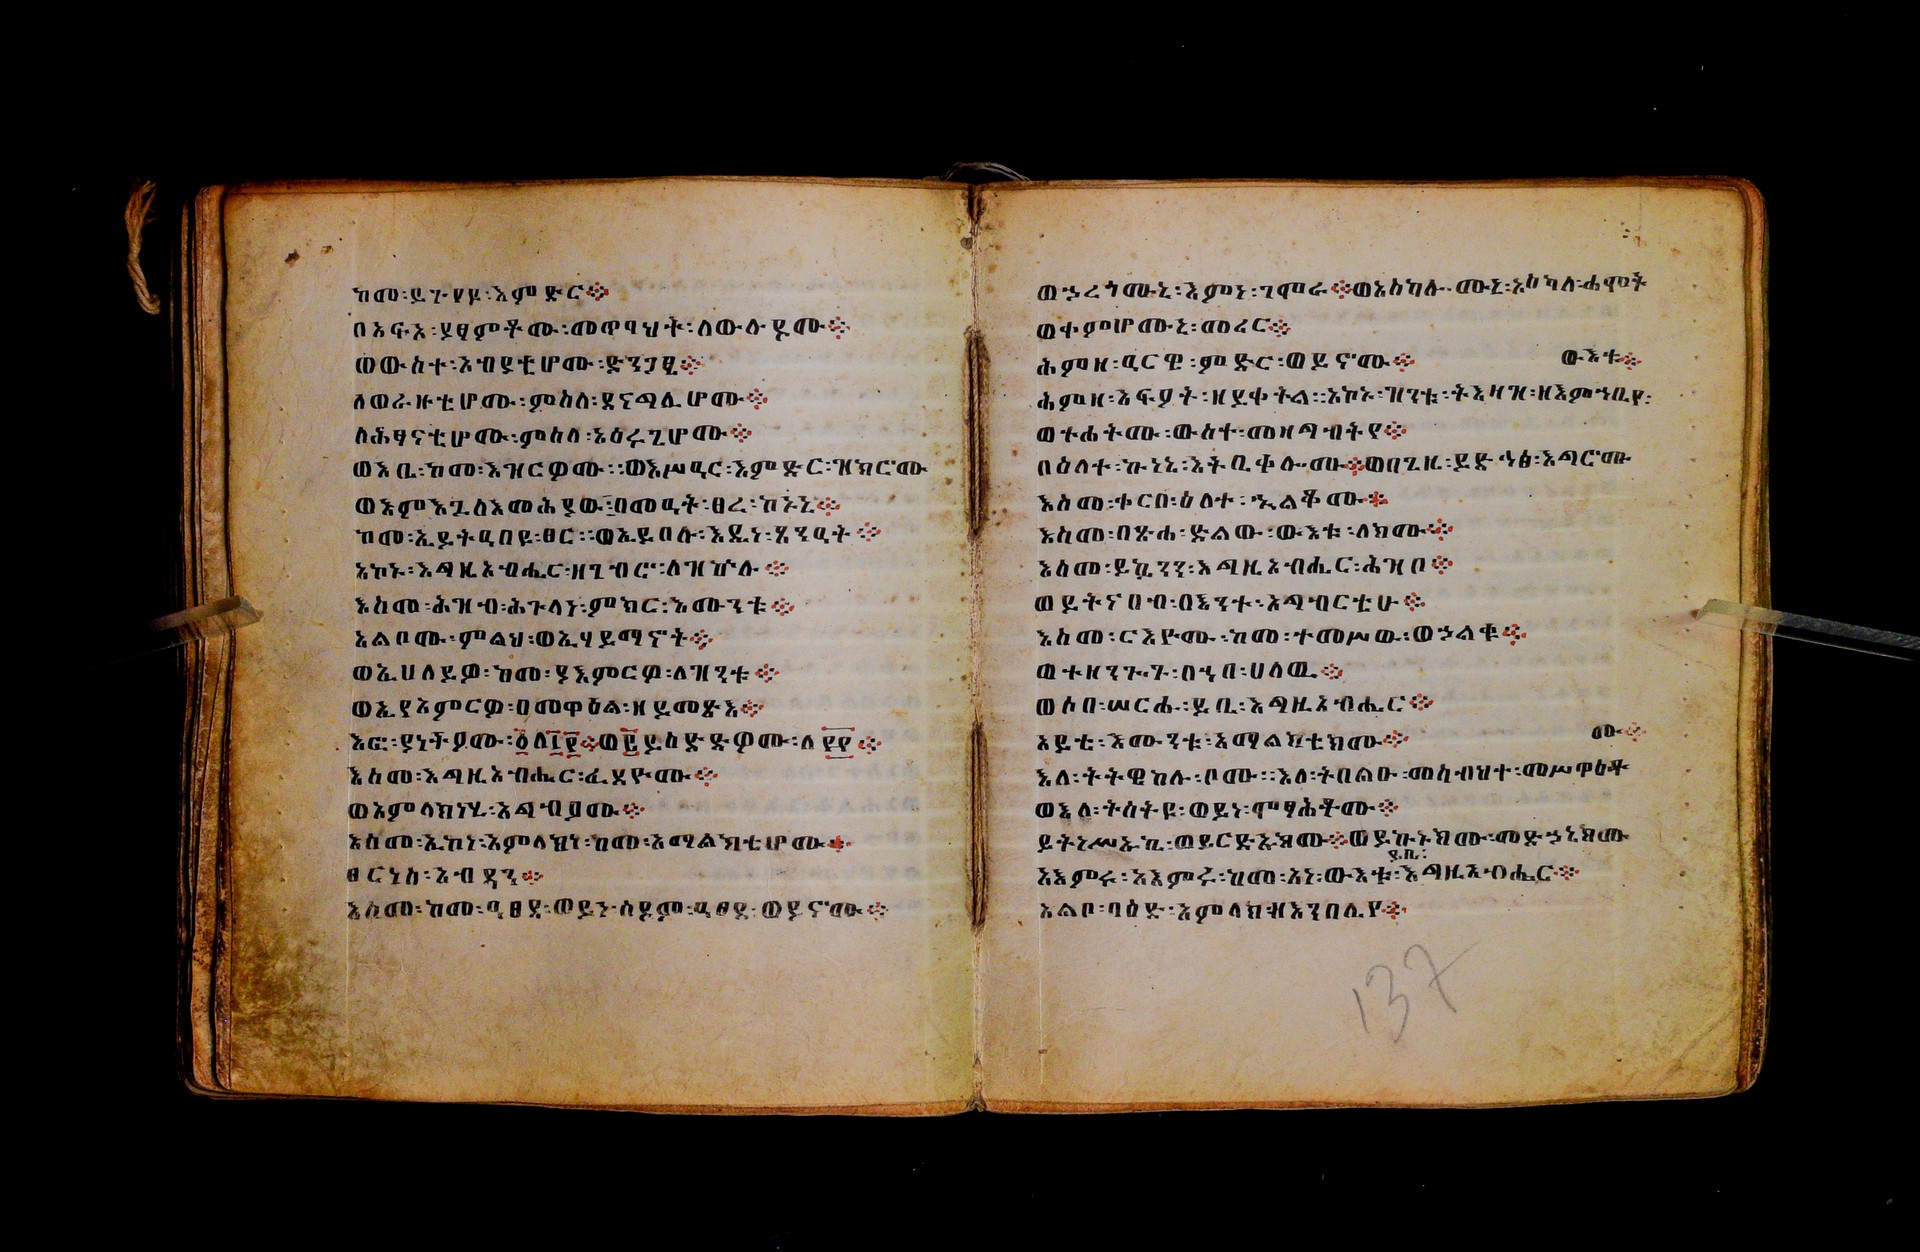 ከመ፡ይጕየዩ፡እምድር፨
በአፍአ፡ያፃምቶሙ፡መጥባህት፡ለውሉዶሙ፨
ወውስተ፡አብያቲሆሙ፡ድንጋፄ፨
ለወራዙቲሆሙ፡ምስለ፡ደናግሊሆሙ፨
ለሕፃናቲሆሙ፡ምስለ፡አዕሩጊሆሙ፨
ወእቤ፡ከመ፡እዝርዎሙ፡፡ወእሥዒር፡እምድር፡ዝክሮሙ
ወእምእጊለእመሕያው፡በመዓት፡ፀረ፡ከኑኒ፨
ከመ፡ኢይትዓበዩ፡ፀር፡፡ወኢይበሉ፡እዴነ፡ጸንዓት፨
አኮኑ፡እግዚአብሔር፡ዘገብሮ፡ለዝኵሉ፨
እስመ፡ሕዝብ፡ሕጉላነ፡ምክር፡እሙንቱ፨
አልቦሙ፡ምልህ፡ወኢሃይማኖት፨
ወኢሀለይዎ፡ከመ፡ያእምርዎ፡ለዝንቱ፨
ወኢያእምርዎ፡በመዋዕል፡ዘይመጽእ፨
እፎ፡ይነትዖሙ፡፩ለ፲፻፨ወ፪ይሰድድዎሙ፡ለ፻፻፨
እስመ፡እግዚአብሔር፡ፈደዮሙ፨
ወአምላክነሂ፡አግብኦሙ፨
እስመ፡ኢኮነ፡አምላክነ፡ከመ፡አማልክቲሆሙ፨
ፀርነሰ፡አብዳን፨
እስመ፡ከመ፡ዓፀደ፡ወይን፡ሰዶም፡ዓፀደ፡ወይኖሙ፨
ወኃረጎሙኒ፡እምነ፡ጎሞራ፨ወአስከሉሙኒ፡አስካለ፡ሐሞት
ወቀምሆሙኒ፡መሪር፨
ሕምዘ፡ዓርዌ፡ምድር፡ወይኖሙ፨
ውእቱ፨
ሕምዘ፡አፍዖት፡ዘይቀትል፡፡አኮኑ፡ዝንቱ፡ትእዛዝ፡ዘእምኀቤየ፡
ወተሐትሙ፡ውስተ፡መዛግብትየ፨
በዕለተ፡ኵነኔ፡እትቤቀሎሙ፨ወበጊዜ፡ይድኅፅ፡እግሮሙ
እስመ፡ቀርበ፡ዕለተ፡ኂልቆሙ፨
እስመ፡በጽሐ፡ድልው፡ውእቱ፡ለክሙ፨
እስመ፡ይኴንን፡እግዚአብሔር፡ሕዝቦ፨
ወይትናበብ፡በእንተ፡አግብርቲሁ፨
እስመ፡ርእዮሙ፡ከመ፡ተመሥዉ፡ወኃልቁ፨
ወተዘንጉጉ፡በኀበ፡ሀለዉ፨
ወሶበ፡ሠርሑ፡ይቤ፡እግዚአብሔር፨
አይቴ፡እሙንቱ፡አማልክቲክሙ፨
ሙ፨
እለ፡ትትዌከሉ፡ቦሙ፡፡እለ፡ትበልዑ፡መስብህተ፡መሥዋዕቶ
ወእለ፡ትሰትዩ፡ወይነ፡ሞፃሕቶሙ፨
ይትነሥኡኬ፡ወይርድኡክሙ፨ወይኩኑክሙ፡መድኃኒክሙ
ይቤ፡
አእምሩ፡አእምሩ፡ከመ፡አነ፡ውእቱ፡እግዚአብሔር፨
አልቦ፡ባዕድ፡አምላክ፡ዘእንበሌየ፨
137